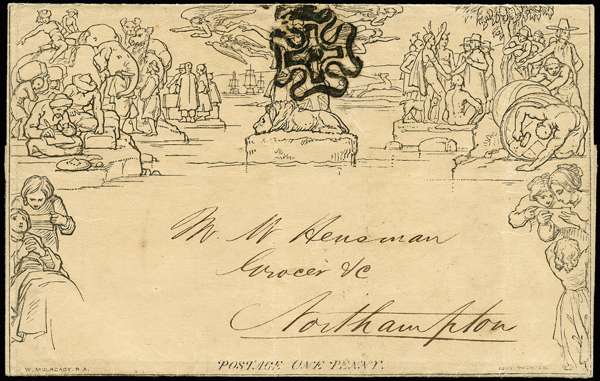 Mr. W Hensman
Grocer &c
Northampton
POSTAGE ONE PENNY.
W. MULREADY. R. A.